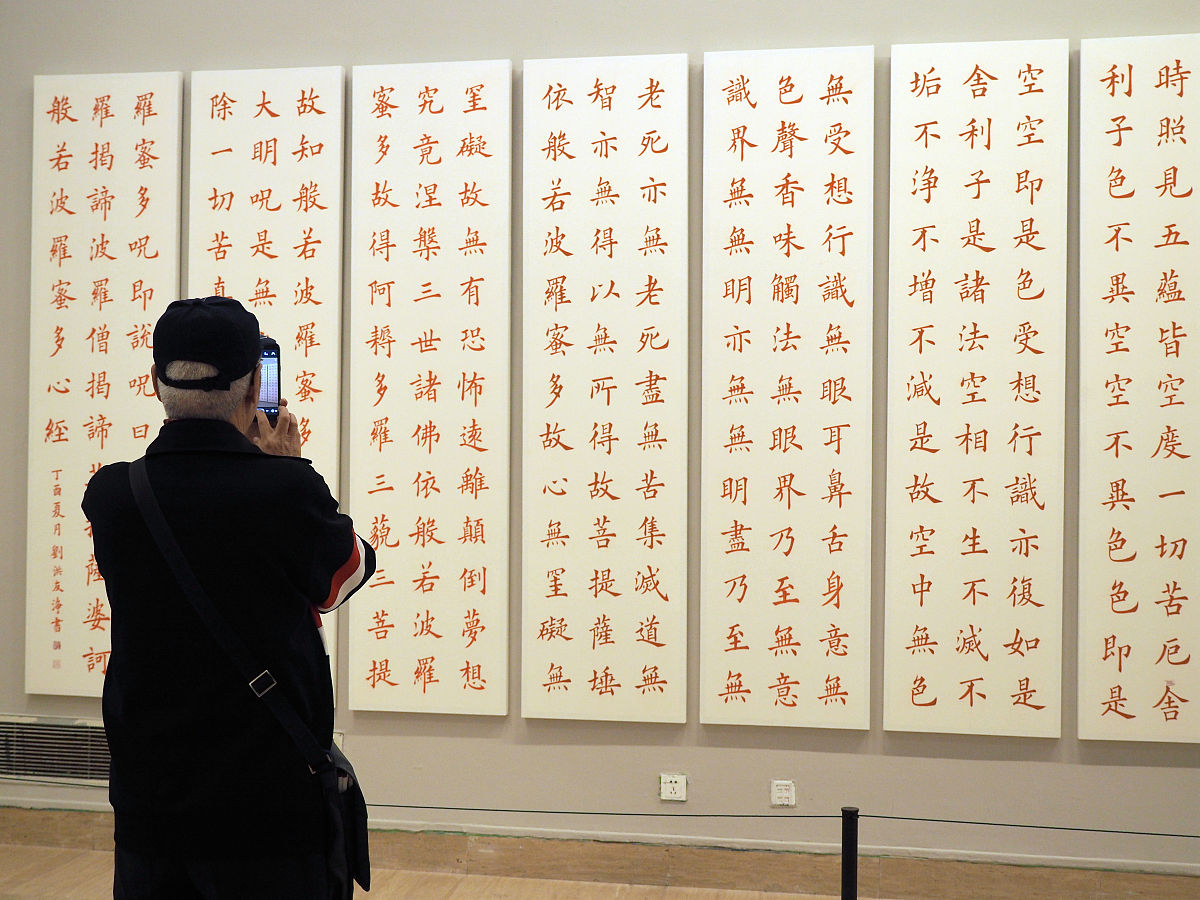 時照見五蘊皆空度一切苦厄舍
利子色不異空空不異色色即是
空空即是色受想行識亦復如是
舍利子是諸法空相不生不滅不
垢不浄不增不減是故空中無色
無受想行識無眼耳鼻舌身意無
色聲香味觸法無眼界乃至無意
識界無無明亦無無明盡乃至無
老死亦無老死盡無苦集滅道無
智亦無得以無所得故菩提薩埵
依般若波羅蜜多故心無罣礙無
罣礙故無有恐怖遠離顛倒夢想
究竟涅槃三世諸佛依般若波羅
蜜多故得阿耨多羅三藐三菩提
故知般若波羅蜜多
大明呪是無
除一切苦
羅蜜多呪即說呪曰
羅揭諦波羅僧揭諦薩婆訶
般若波羅蜜多心經
丁酉夏月劉洪友淨書